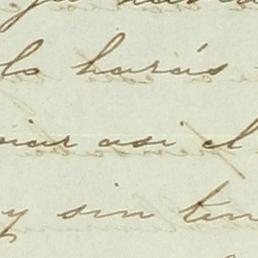 lo harás
iar asi el
y sin ten